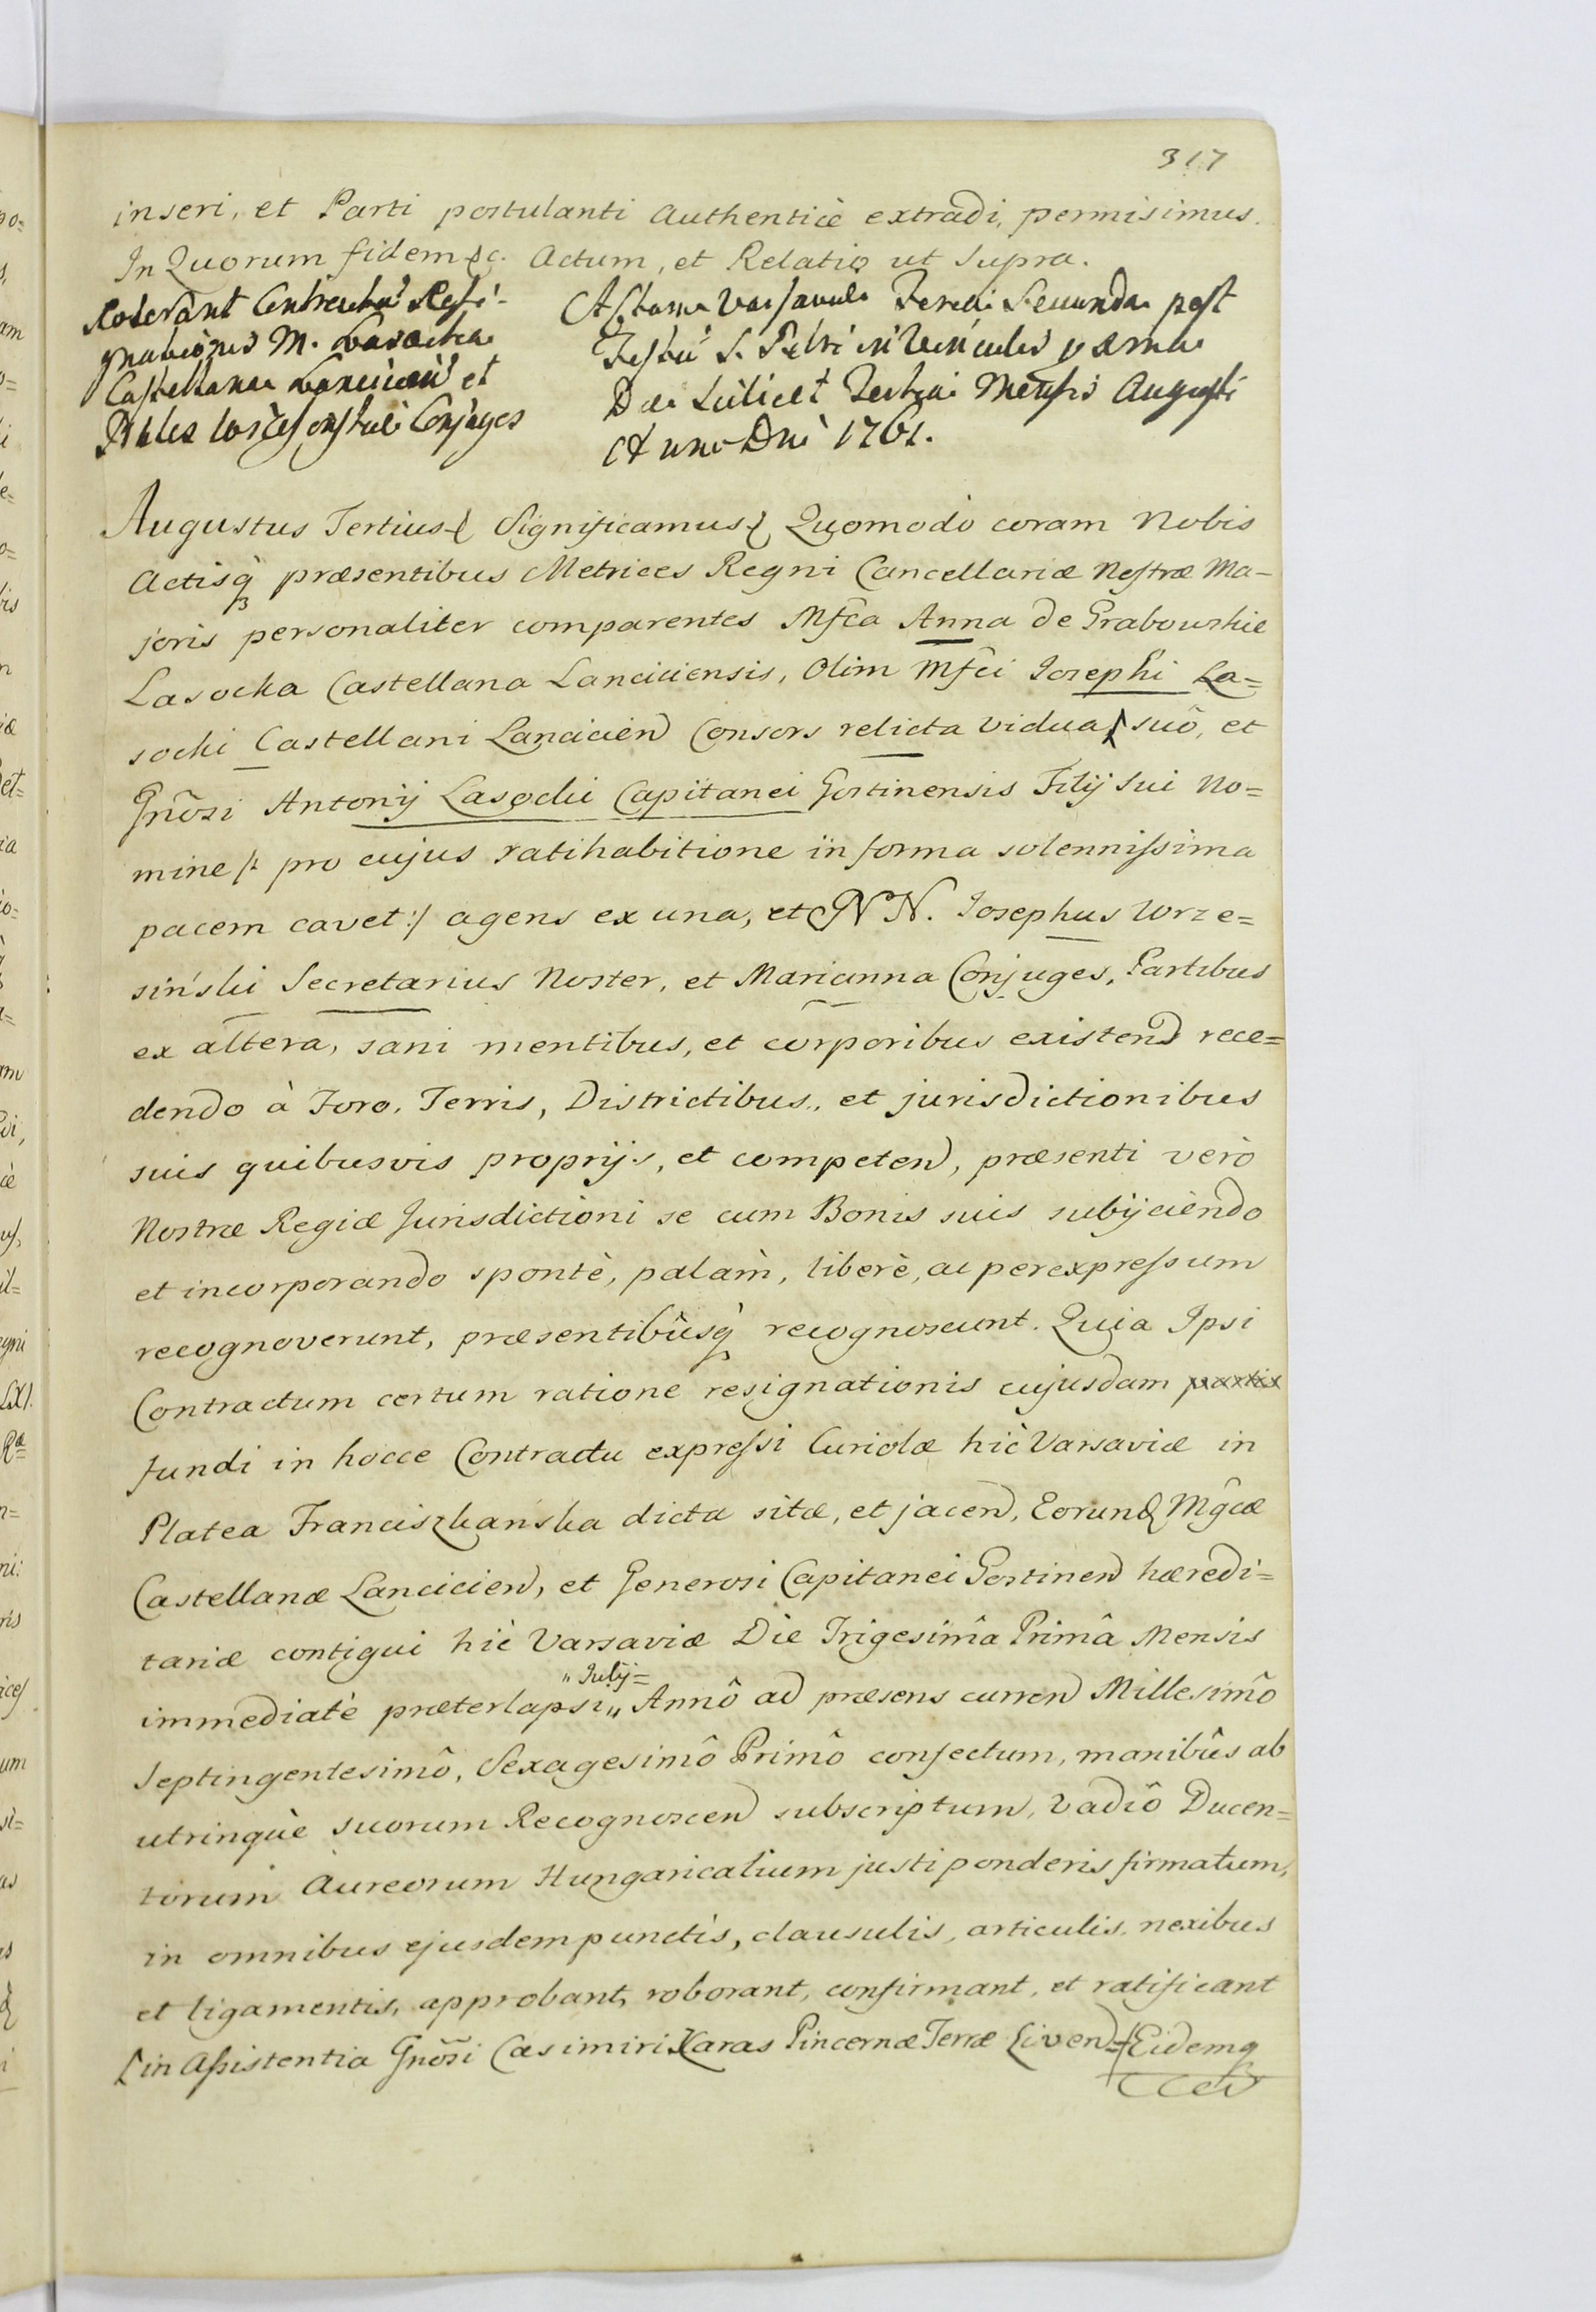 317
inseri, et Parti postulanti Authenticè extradi, permisimus.
In Quorum fidem &c. Actum, et Relatio ut Supra.
Roborant Contractũ Resi-
gnationis M. Lasocka
Castellana Lancicien̄ et
Nobles Wrzesinskie Conjuges
Actum Varsaviæ Feria Secunda post
Festũ S. Petri in Vinculis proxima
Die Scilicet Tertia Mensis Augusti
Anno Dni 1761.
Augustus Tertius Significamus Quomodo coram Nobis
Actisq̀ præsentibus Metrices Regni Cancellariæ Nostræ Ma-
joris personaliter comparentes Mfca Anna de Grabowskie
Lasocka Castellana Lanciciensis, Olim Mfci Josephi La=
socki Castellani Lancicien Consors relicta vidua suô, et
Gñosi Antonij Lasocki Capitanei Gostinensis Filij Sui No=
mine /: pro cujus ratihabitione in forma solennissima
pacem cavet :/ agens ex una, et NN. Josephus Wrze=
siński Secretarius Noster, et Marianna Conjuges, Partibus
ex altera, sani mentibus, et corporibus existen rece=
dendo à Foro, Terris, Districtibus, et jurisdictionibus
suis quibusvis proprijs, et competen, præsenti verò
Nostræ Regiæ Jurisdictioni se cum Bonis suis subijciendo
et incorporando spontè, palàm, liberè, ac per expressum
recognoverunt, præsentibûsq̀ recognoscunt. Quia Ipsi
Contractum certum ratione resignationis cujusdam
fundi in hocce Contractu expressi Curiolæ hìc Varsaviæ in
Platea Franciszkanska dicta sitæ, et jacen, Eorund Mgcæ
Castellanæ Lancicien, et Generosi Capitanei Gostinen hæredi=
tariæ contigui hìc Varsaviæ Die Trigesimâ Primâ Mensis
immediatè præterlapsi „ Julij = „ Annô ad præsens curren Millesimô
Septingentesimô, Sexagesimô Primô confectum, manibûs ab
utrinquè suorum Recognoscen subscriptum, vadiô Ducen=
torum Aureorum Hungaricalium justi ponderis firmatum,
in omnibus ejusdem punctis, clausulis, articulis, nexibus
et ligamentis, approbant, roborant, confirmant, et ratificant
[in Assistentia Gñosi Casimiri Karas Pincernæ Terræ Liven Eidemq